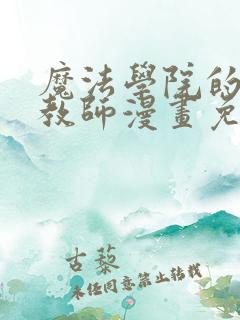 魔法學院的
教師漫畫免
古藜
未经同意禁止转载